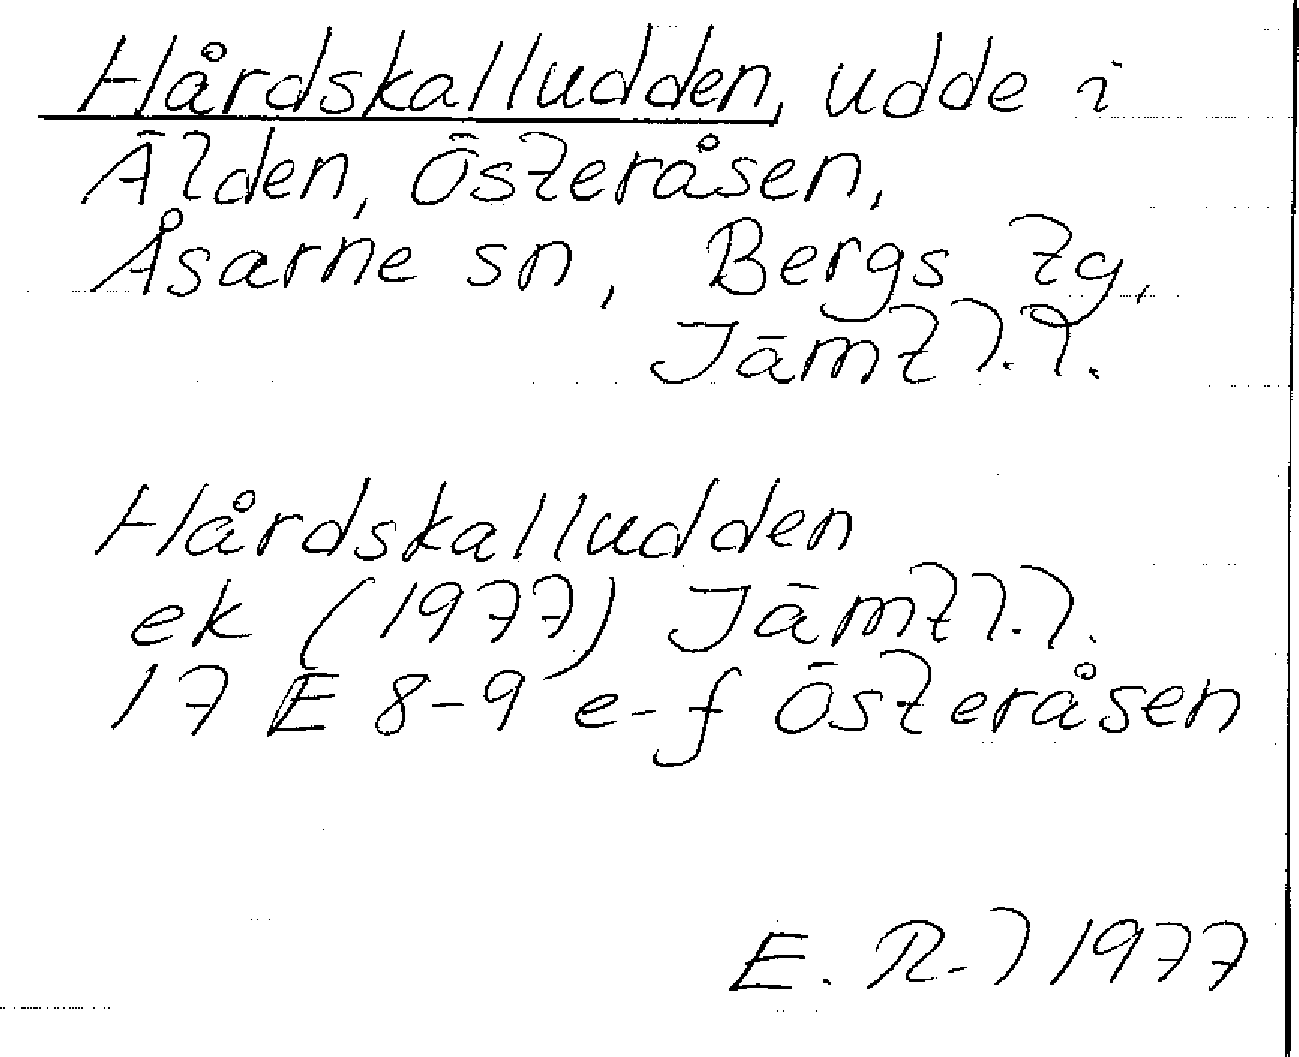 Hårdskalludden, udde i
Älden, Österåsen,
Åsarne sn, Bergs tg,
Jämtl. l.
Hårdskalludden
ek (1977) Jämtl. l.
17 E 8-9 e-f Österåsen
E. R-l 1977